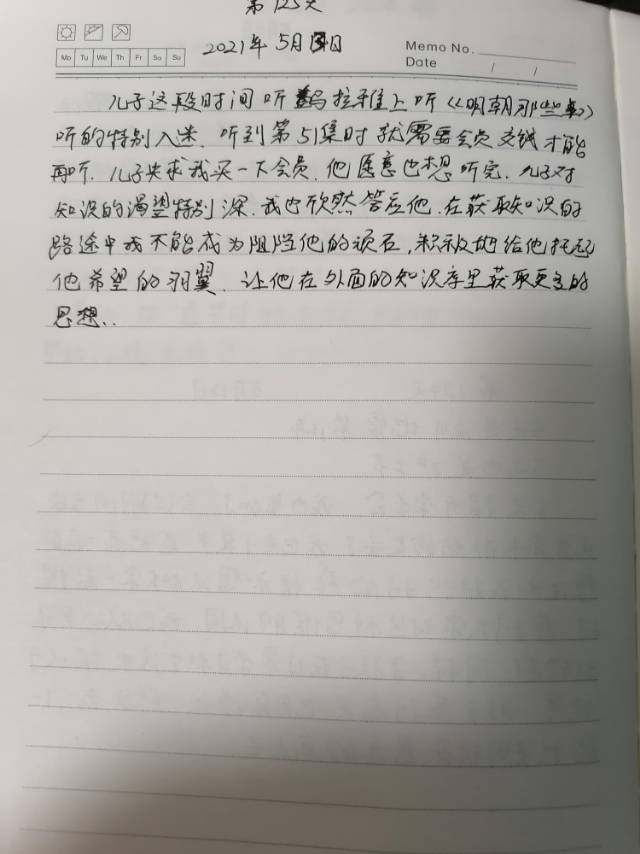 第125天
Mo Tu We Th Fr Sa Su
2021年5月日
Memo No.
Date / /
儿子这段时间听喜马拉雅上听《明朝那些事》
听的特别入迷. 听到第51集时就需要会员交钱才能
再听. 儿子央求我买一下会员. 他愿意也想听完. 儿子对
知识的渴望特别深. 我也欣然答应他. 在获取知识的
路途中我不能成为阻挡他的顽石, 积极地给他托起
他希望的羽翼. 让他在外面的知识库里获取更多的
思想..